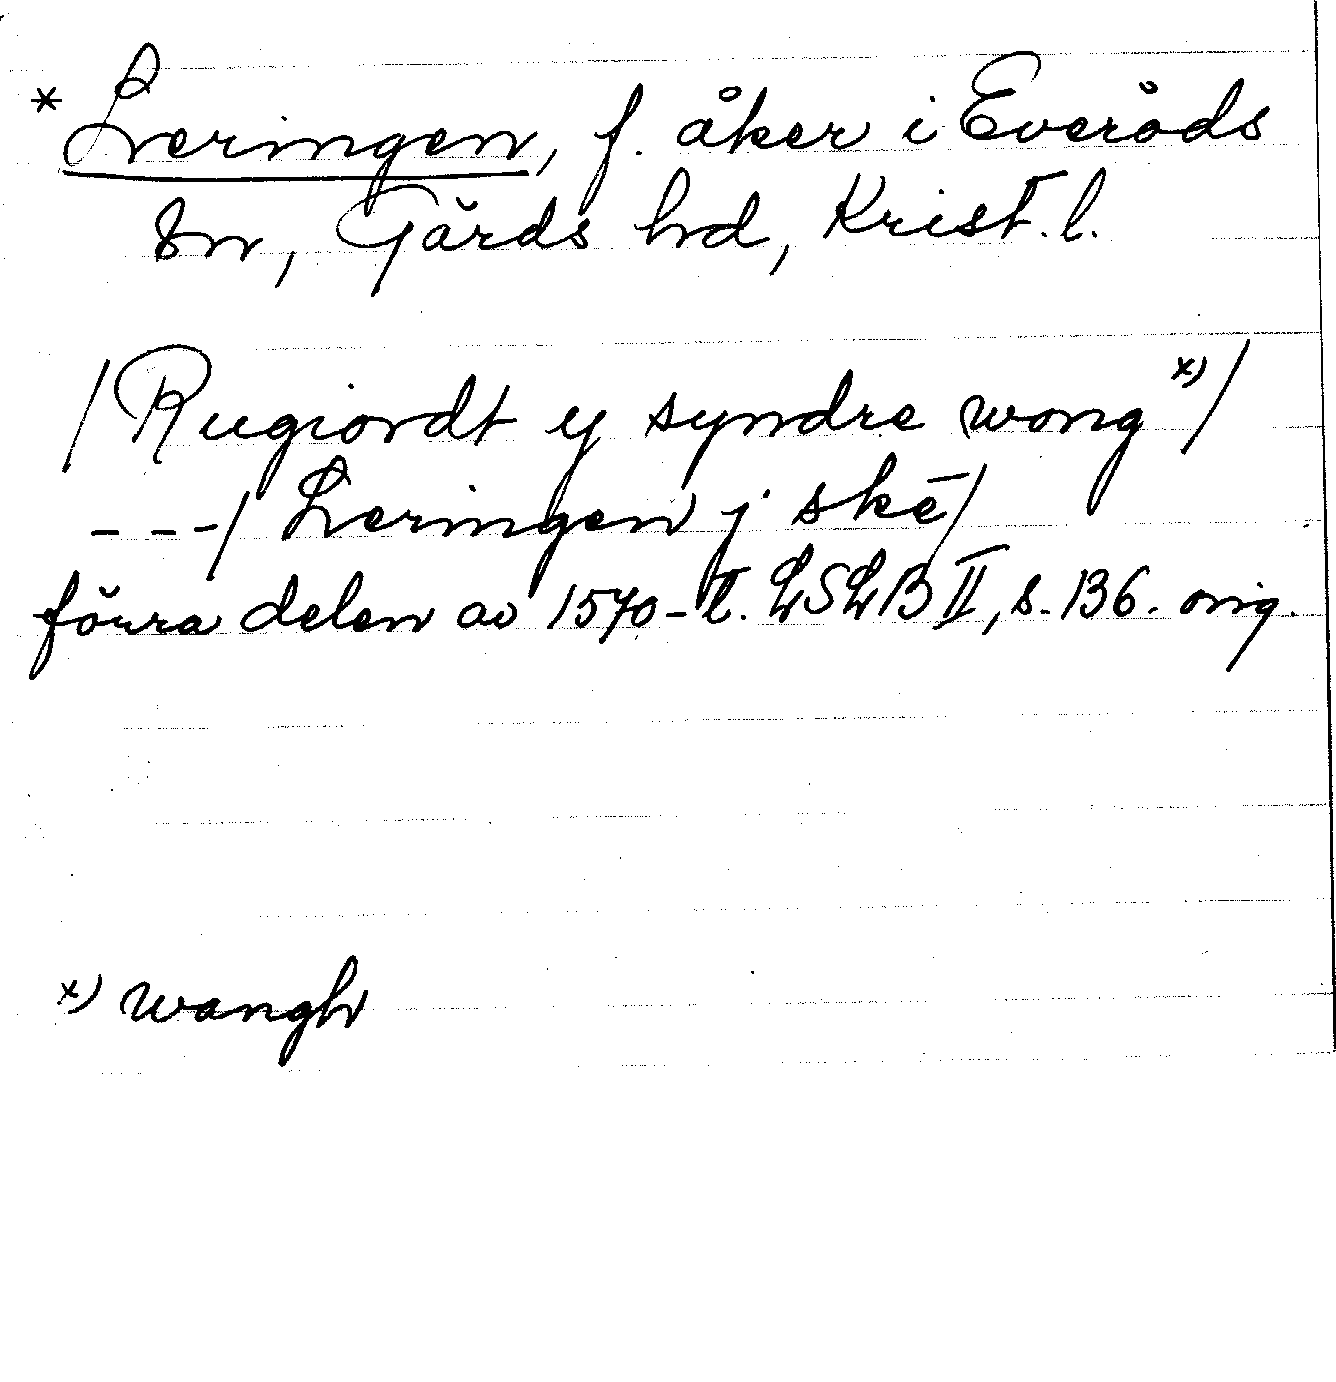 * Leringen, f. åker i Everöds
sn, Gärds hd, Krist. l.
/Rugiordt ij syndre wong x)/
---/ Leringen j skē/
förra delen av 1570-t. LSLB II, s. 136. orig.
x) wangh